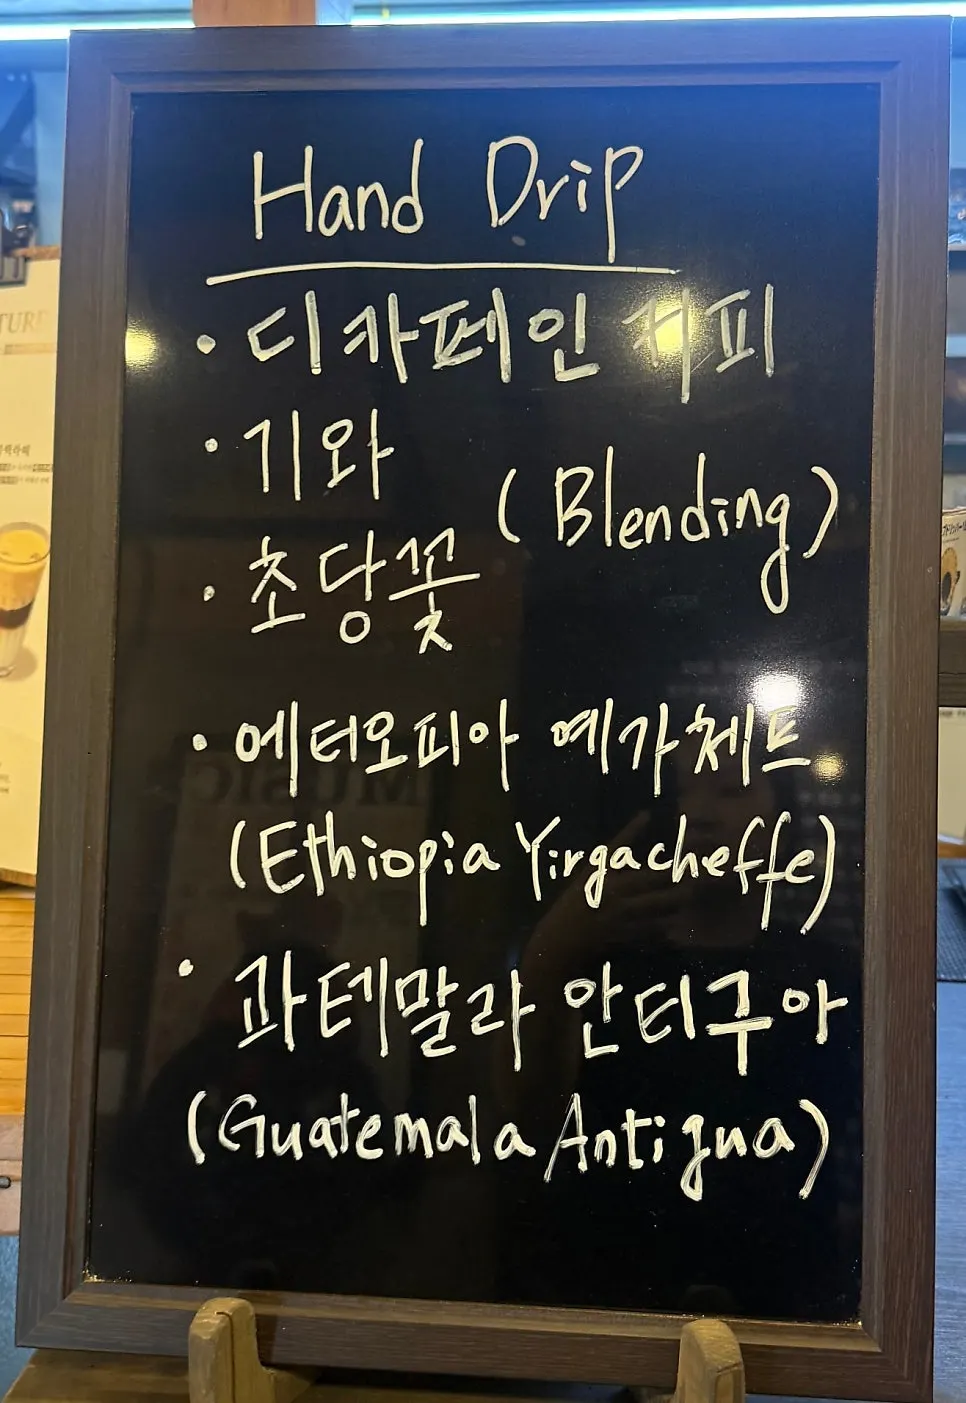 Hand Drip
· 디카페인 커피
· 기와
(Blending)
· 초당꽃
· 에티오피아 예가체프
(Ethiopia Yirgacheffe)
· 과테말라 안티구아
(Guatemala Antigua)